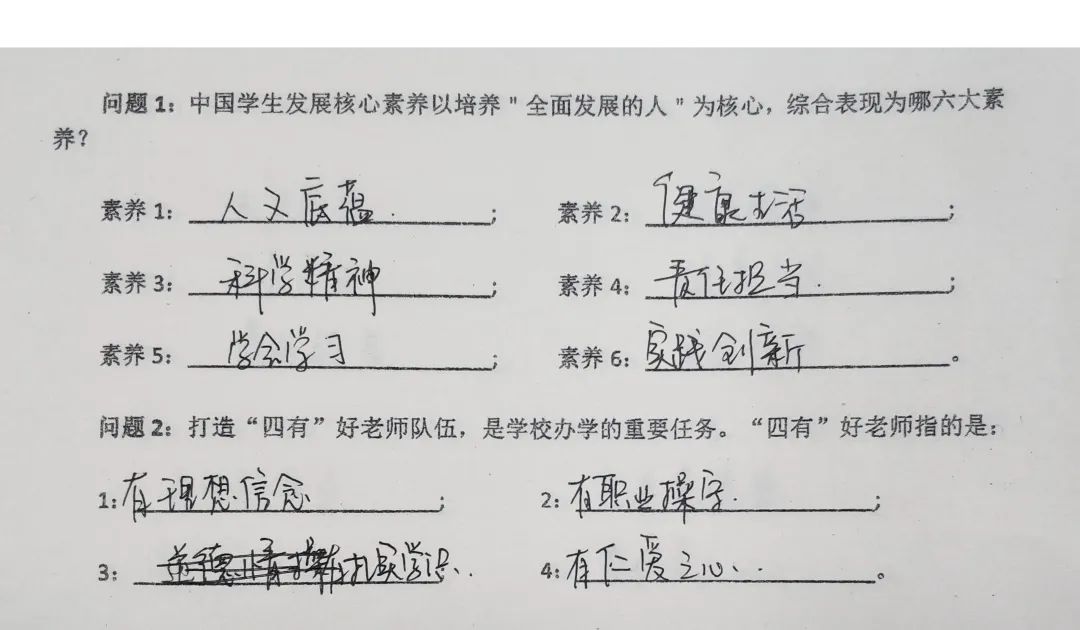 问题 1：中国学生发展核心素养以培养"全面发展的人"为核心，综合表现为哪六大素
养？
素养 1：人文底蕴. ； 素养 2：健康生活 ；
素养 3：科学精神 ； 素养 4：责任担当. ；
素养 5：学会学习 ； 素养 6：实践创新 。
问题 2：打造“四有”好老师队伍，是学校办学的重要任务。“四有”好老师指的是：
1：有理想信念 ； 2：有职业操守. ；
3：有扎实学识. 4：有仁爱之心. 。